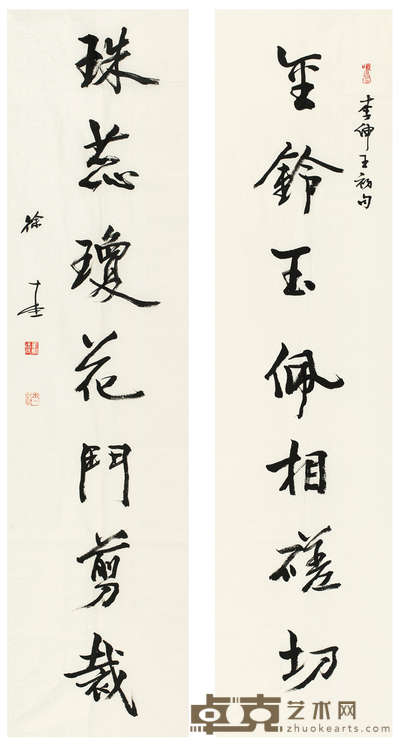 金鈴玉佩相磋切
李紳王初句
珠蕊瓊花鬥剪裁
徐
卓克艺术网
zhuokearts.com